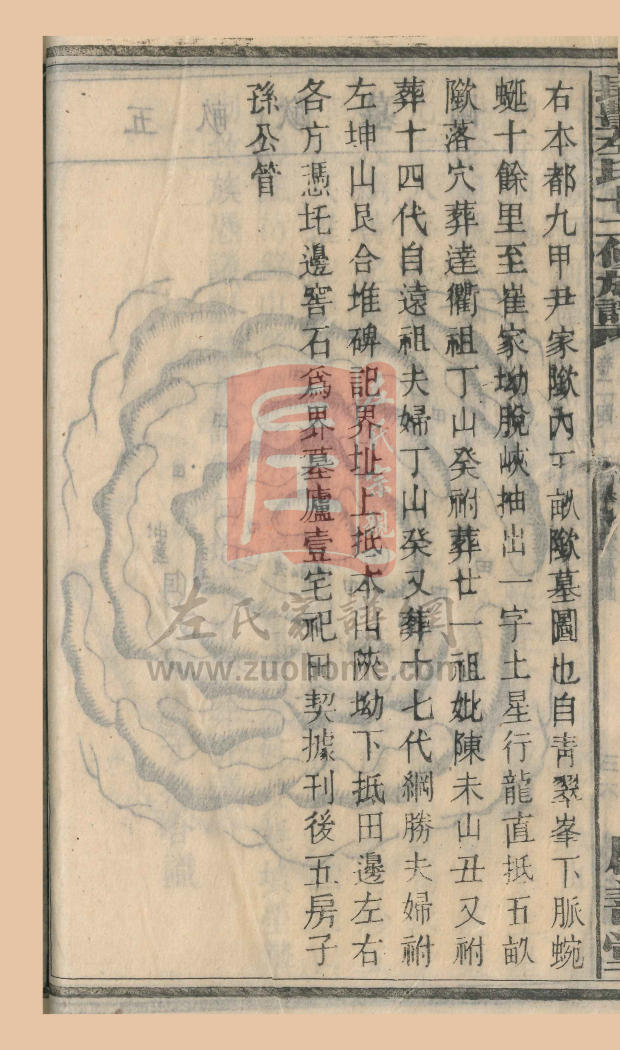 右本都九甲尹家墩內五畝墩墓圖也自靑翠峯下脈蜿
蜒十餘里至崔家坳脫峽抽出一字土星行龍直抵五畝
墩落穴葬達衢祖丁山癸祔葬廿一祖妣陳未山丑又祔
葬十四代自遠祖夫婦丁山癸又葬十七代綱勝夫婦祔
左坤山艮合堆碑記界址上抵本山陝坳下抵田邊左右
各方憑圫邊窖石爲界墓廬壹宅祀田契據刊後五房子
孫公管
左氏家譜網
www.zuohome.com